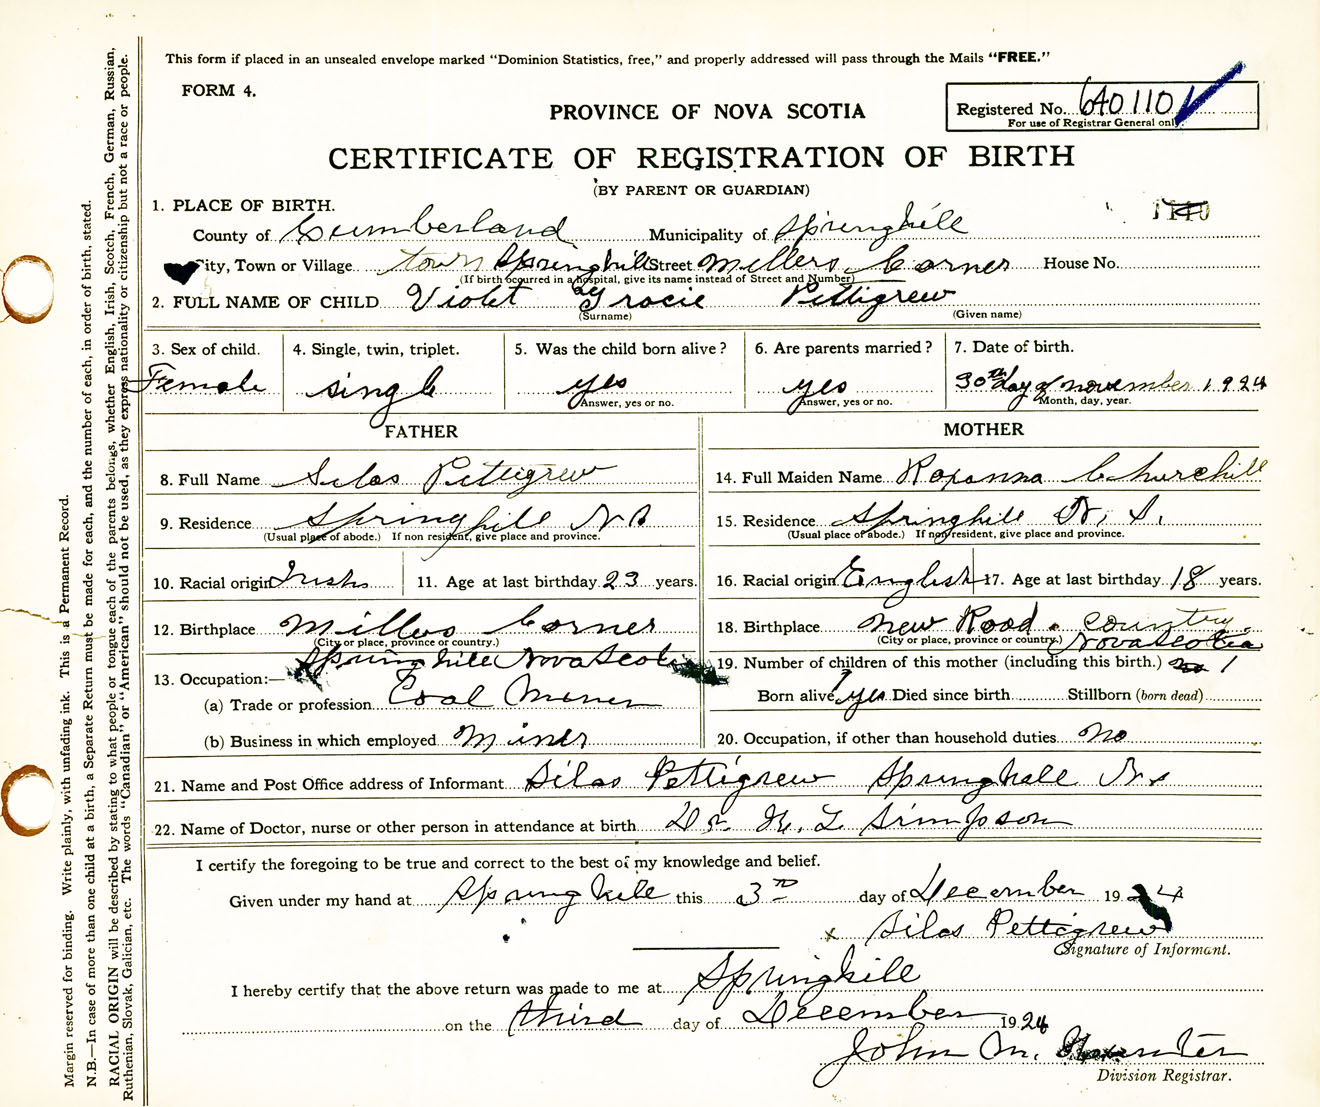 This form if placed in an unsealed envelope marked "Dominion Statistics, free," and properly addressed will pass through the Mails "FREE."
FORM 4.
Registered No. 640110
For use of Registrar General only.
PROVINCE OF NOVA SCOTIA
CERTIFICATE OF REGISTRATION OF BIRTH
(BY PARENT OR GUARDIAN)
1. PLACE OF BIRTH.
County of Cumberland Municipality of Springhill
City, Town or Village town Springhill Street Millers Corner House No.
(If birth occurred in a hospital, give its name instead of Street and Number)
2. FULL NAME OF CHILD Violet Gracie Pettigrew
(Surname) (Given name)
3. Sex of child. 4. Single, twin, triplet. 5. Was the child born alive? 6. Are parents married? 7. Date of birth.
Female single yes yes 30th day of november 1924
Answer, yes or no. Answer, yes or no. Month, day, year.
FATHER MOTHER
8. Full Name Silas Pettigrew 14. Full Maiden Name Roxanna Churchill
9. Residence Springhill N S 15. Residence Springhill N. S.
(Usual place of abode.) If non resident, give place and province. (Usual place of abode.) If non resident, give place and province.
10. Racial origin Irish 11. Age at last birthday 23 years. 16. Racial origin English 17. Age at last birthday 18 years.
12. Birthplace Millers Corner 18. Birthplace New Road. country
(City or place, province or country.) (City or place, province or country.) Nova Scotia
Springhill Nova Scotia 19. Number of children of this mother (including this birth.) 1
13. Occupation:—
(a) Trade or profession Coal Miner Born alive yes Died since birth Stillborn (born dead)
(b) Business in which employed Miner 20. Occupation, if other than household duties no
21. Name and Post Office address of Informant Silas Pettigrew Springhill N s
22. Name of Doctor, nurse or other person in attendance at birth Dr. H. L Simpson
I certify the foregoing to be true and correct to the best of my knowledge and belief.
Given under my hand at Springhill this 3rd day of December 1924
x Silas Pettigrew
Signature of Informant.
I hereby certify that the above return was made to me at Springhill
on the third day of December 1924
John M.
Division Registrar.
Margin reserved for binding. Write plainly, with unfading ink. This is a Permanent Record.
N.B.—In case of more than one child at a birth, a Separate Return must be made for each, and the number of each, in order of birth, stated.
RACIAL ORIGIN will be described by stating to what people or tongue each of the parents belongs, whether English, Irish, Scotch, French, German, Russian,
Ruthenian, Slovak, Galician, etc. The words "Canadian" or "American" should not be used, as they express nationality or citizenship but not a race or people.